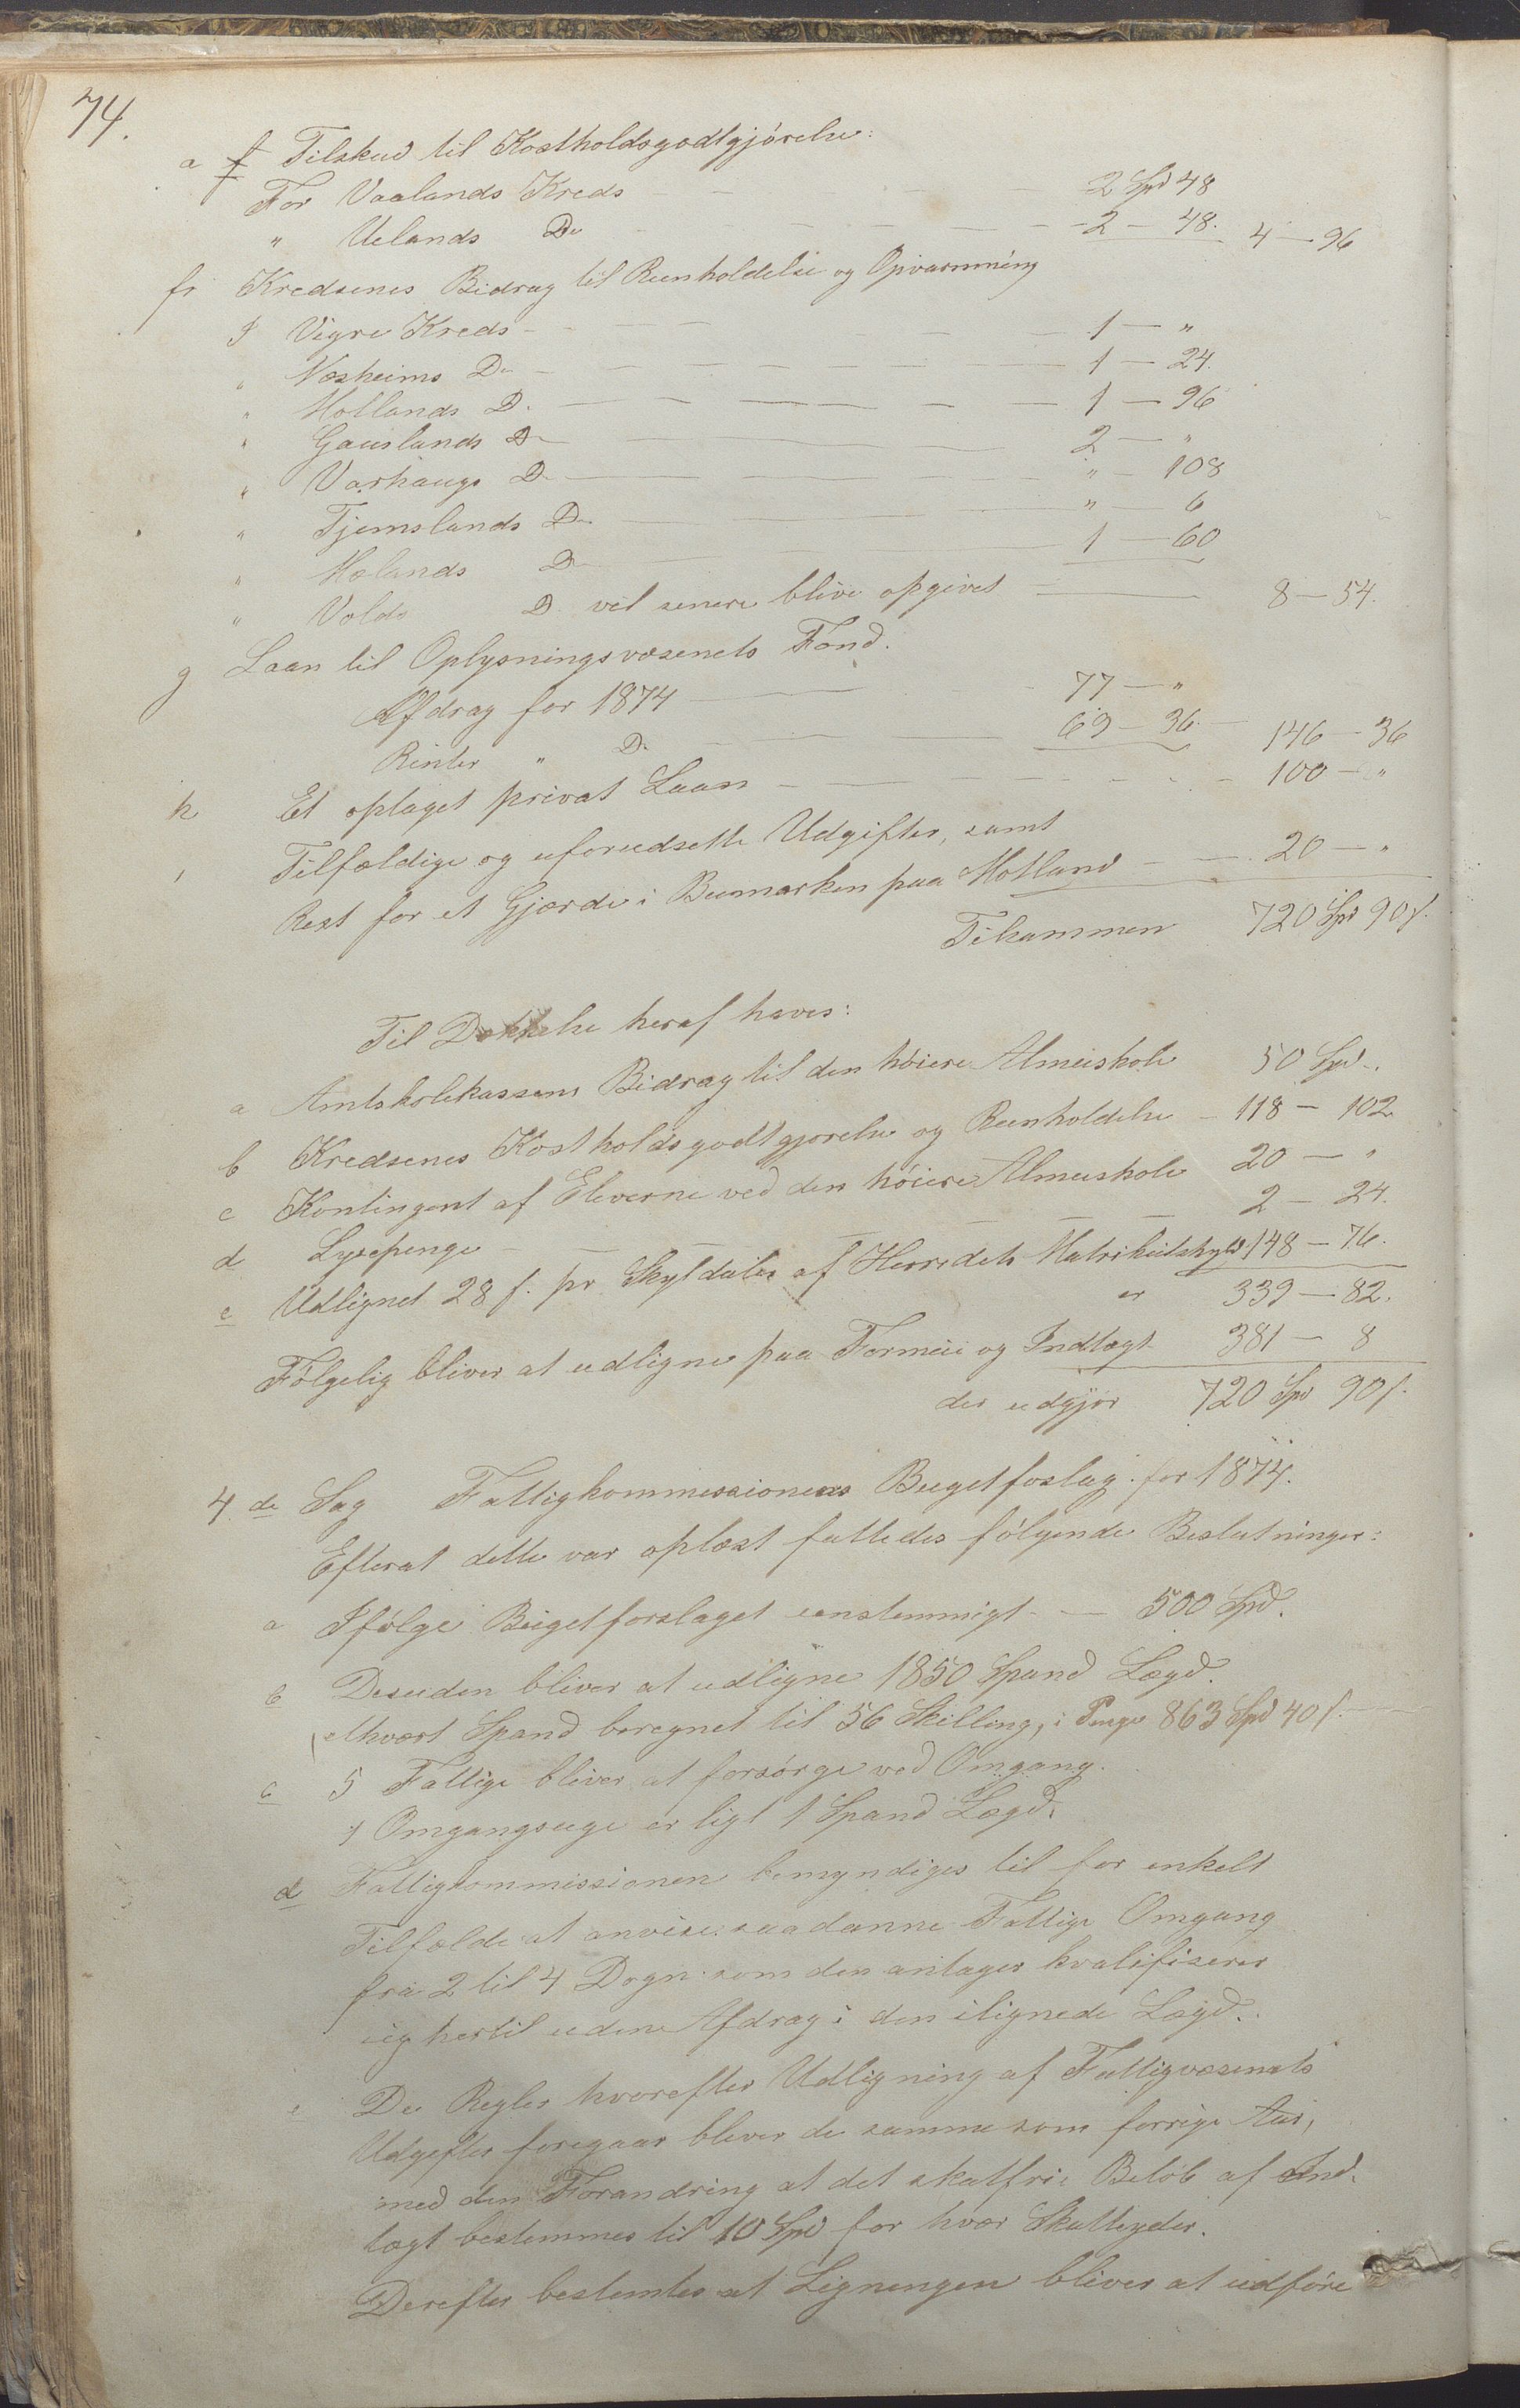 74.
a f Tilskud til Kostholdsgodtgjörelse:
For Vaalands Kreds — 2 Spd 48
" Uelands Do — 2 — 48. 4 — 96
fr Kredsenes Bidrag til Reenholdelse og Opvarmning
I Vigre Kreds — 1 — "
" Næsheims Do — 1 — 24.
" Motlands D. — 1 — 96
" Gauslands D — 2 — "
" Varhaugs D. — " — 108
" Tjemslands D. — " — 6
" Mælands D — 1 — 60
" Volds D. vil senere blive opgivet — 8 — 54.
g Laan til Oplysningsvæsenets Fond.
Afdrag for 1874 — 77 — "
Renter " D. — 69 — 36. — 146 — 36
h Et optaget privat Laan — 100 — "
i Tilfældige og uforudsette Udgifter, samt
Rest for et Gjærde i Bumarken paa Motland — 20 — "
Tilsammen 720 Spd 90 s.
Til Dækkelse heraf haves:
a Amtskolekassens Bidrag til den höiere Almueskole 50 Spd.
b Kredsenes Kostholdsgodtgjorelse og Reenholdelse — 118 — 102
c Kontingent af Eleverne ved den höiere Almueskole 20 — "
d Lysepenge — 2 — 24.
e Udlignet 28 s. pr Skyldaler af Herredets Matrikulskyld 148 — 76.
er 339 — 82.
Fölgelig bliver at udligne paa Formue og Indtægt 381 — 8
der udgjør 720 Spd 90 s.
4de Sag Fattigkommissionens Bugetfoslag for 1874.
Efterat dette var oplæst fattedes fölgende Beslutninger:
a Ifölge Bugetforslaget eenstemmigt — 500 Spd.
b Desuden bliver at udligne 1850 Spand Lægd.
hvert Spand beregnet til 56 Skilling, i Penge 863 Spd 40 s.
c 5 Fattige bliver at forsörge ved Omgang.
1 Omgangsuge er ligt 1 Spand Lægd.
d Fattigkommissionen bemyndiges til for enkelt
Tilfælde at anvise saadanne Fattige Omgang
fra 2 til 4 Dogn som den antager kvalifiserer
sig hertil uden Afdrag i den ilignede Lægd.
e De Regler hvorefter Udligning af Fattigvæsenets
Udgifter foregaar bliver de samme som forrige Aar,
med den Forandring at det skatfrie Belöb af Ind-
tægt bestemmes til 10 Spd for hver Skatteyder.
Derefter bestemtes at Ligningen bliver at udföre